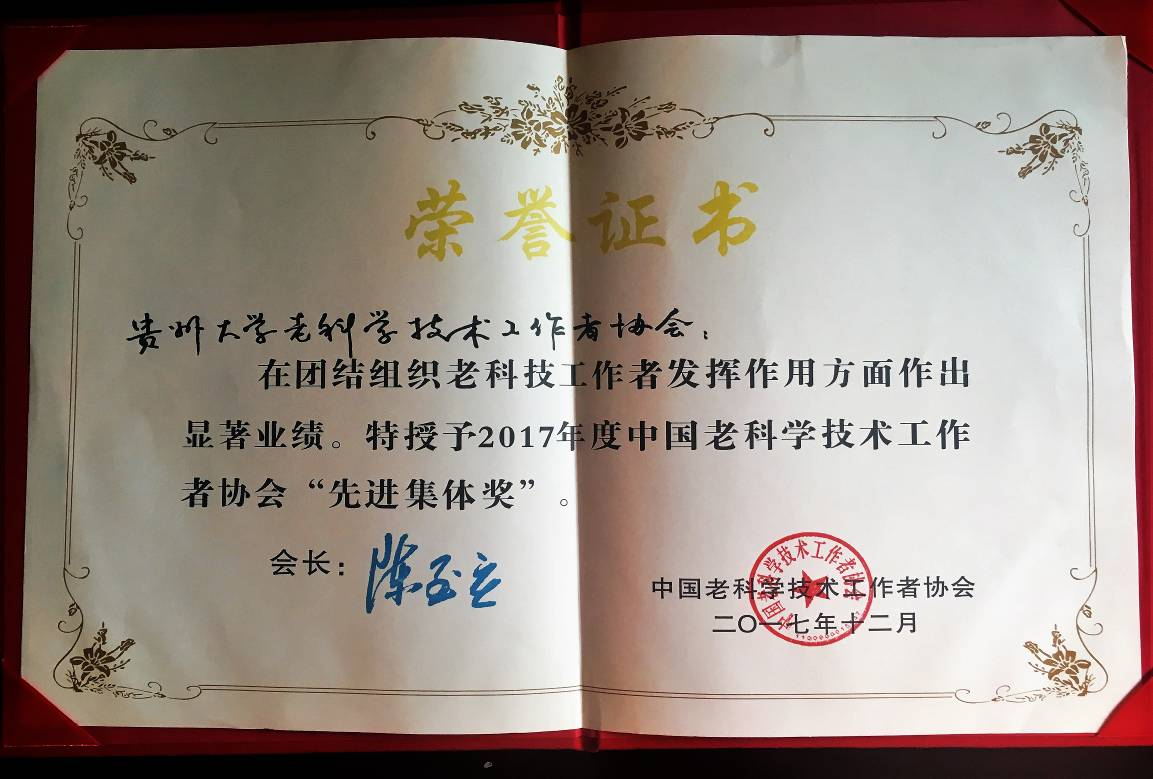 荣誉证书
贵州大学老科学技术工作者协会：
在团结组织老科技工作者发挥作用方面作出
显著业绩。特授予2017年度中国老科学技术工作
者协会“先进集体奖”。
会长：陈至立
中国老科学技术工作者协会
中国老科学技术工作者协会
二〇一七年十二月